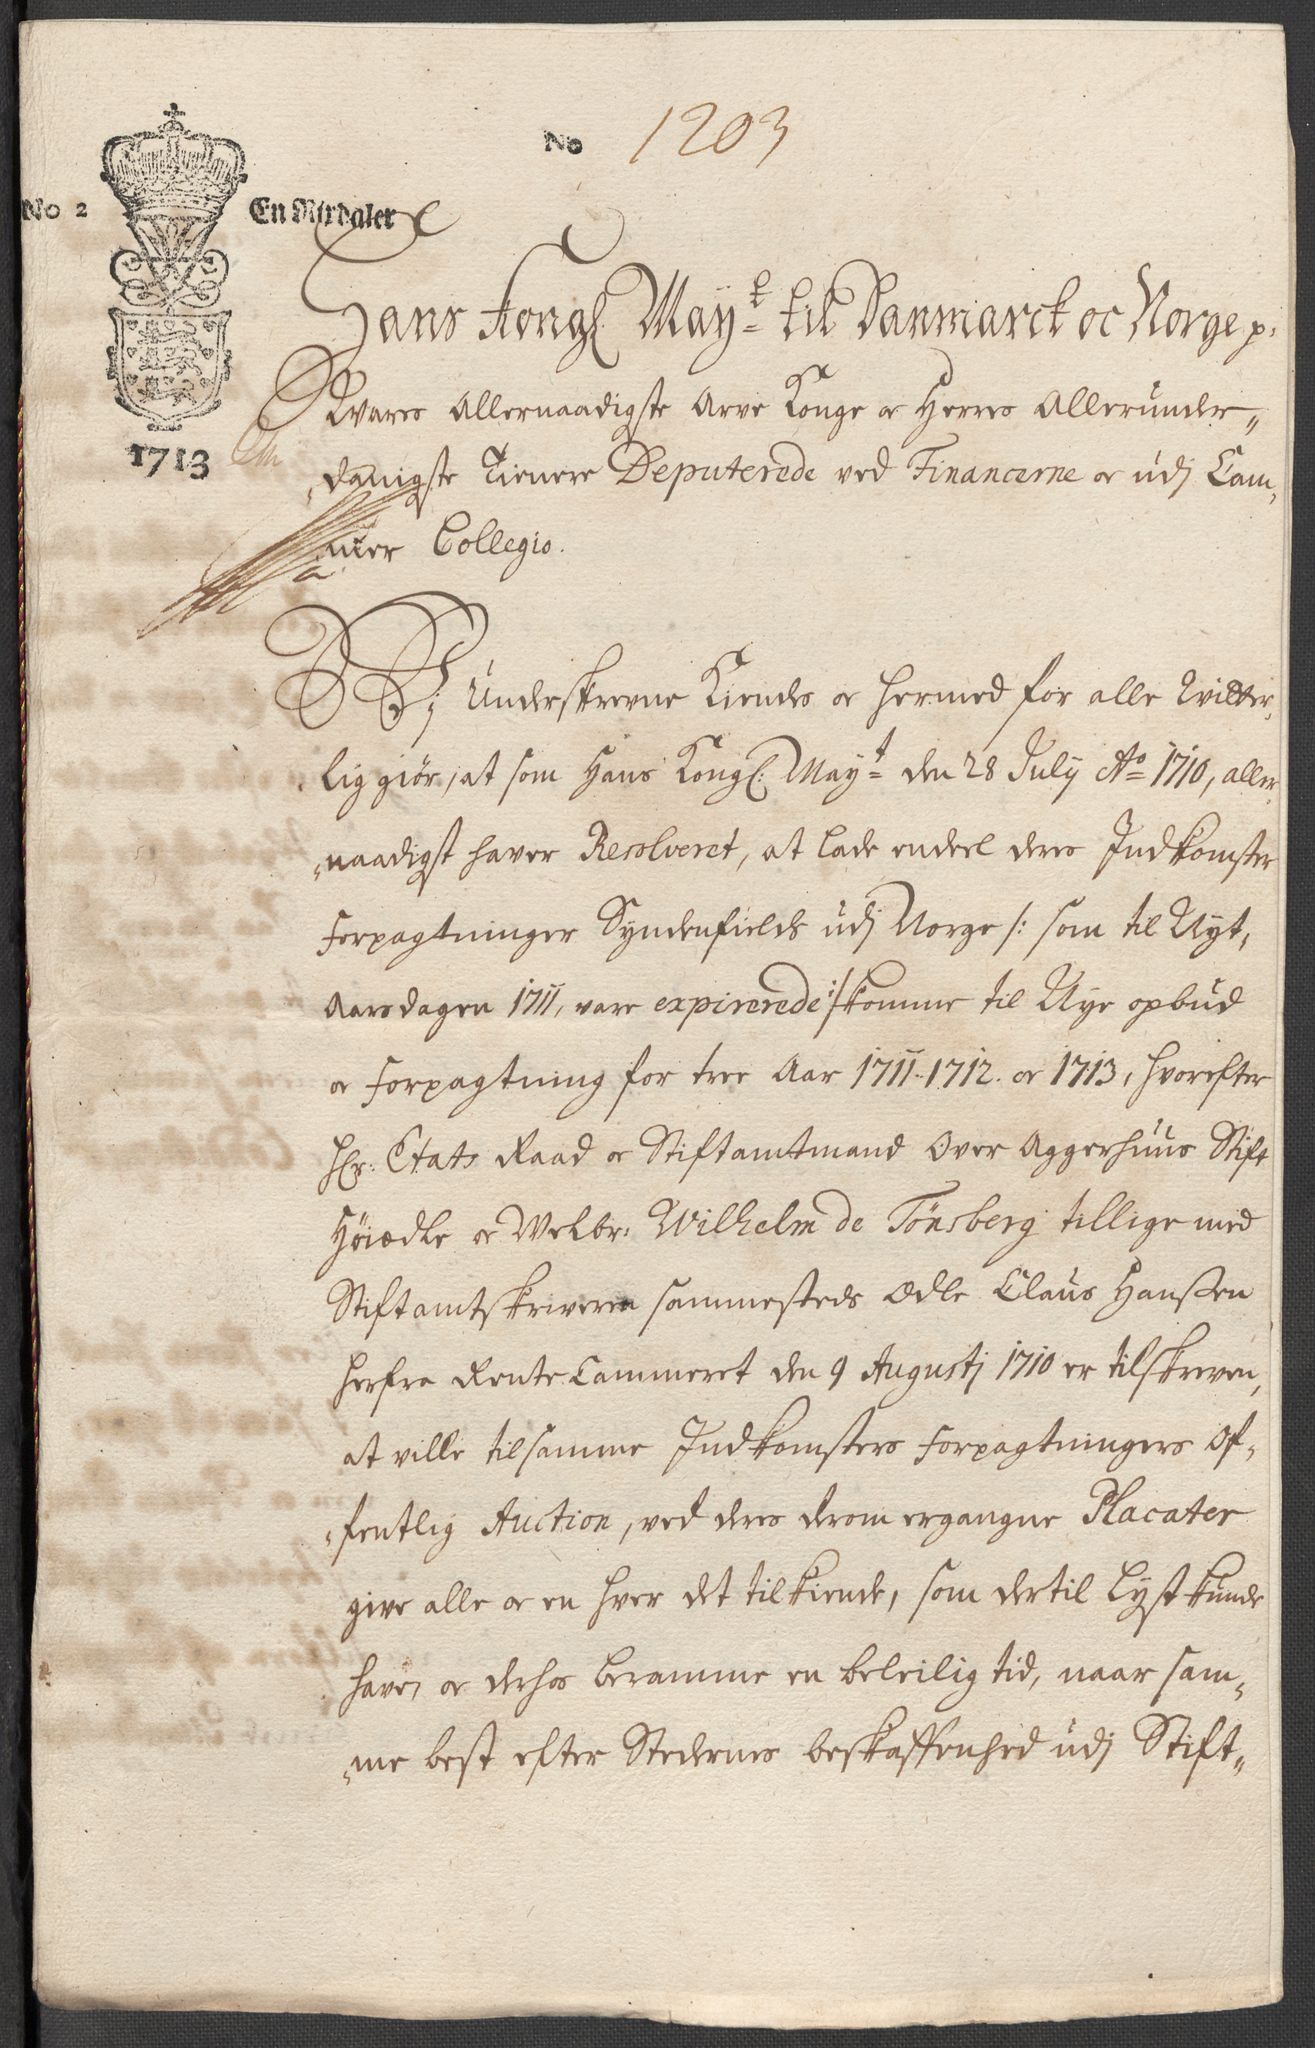 No 1203
No 2 En Rixdaler
1713
Hans Kongl. May.t til Danmarck oc Norge p.
Wares Allernaadigste Arve Konge oc Herres Allerunder„
„danigste Tienere Deputerede ved Financerne oc udj Cam„
mer Collegio.
Wj Underskrevne Kiendes oc hermed for alle Witter„
lig giør, at som Hans Kongl: May.t den 28 Julij Ao 1710, aller„
„naadigst haver Resolveret, at lade endeel deres Indkomster
Forpagtninger Syndenfields udj Norge /: som til Nyt„
Aarsdagen 1711, vare expirerede :/ komme til Nye opbud
oc Forpagtning for tree Aar 1711. 1712. oc 1713, hvorefter
Hr: Etats Raad oc Stiftamtmand Over Aggerhuus Stift
Høiædle oc Welbr: Wilhelm de Tønsberg tillige med
Stiftamtskriveren sammesteds Ædle Claus Hanßen
herfra Rente Cammeret den 9 Augustj 1710 er tilskreven,
at ville tilsamme Indkomsters Forpagtningers of„
„fentlig Auction, ved deres derom ergangne Placater
give alle oc en hver det tilkiende, som dertil Lyst kunde
have, oc derhos beramme en beleilig tid, naar sam„
„me best efter Stedernes beskaffenhed udj Stift„